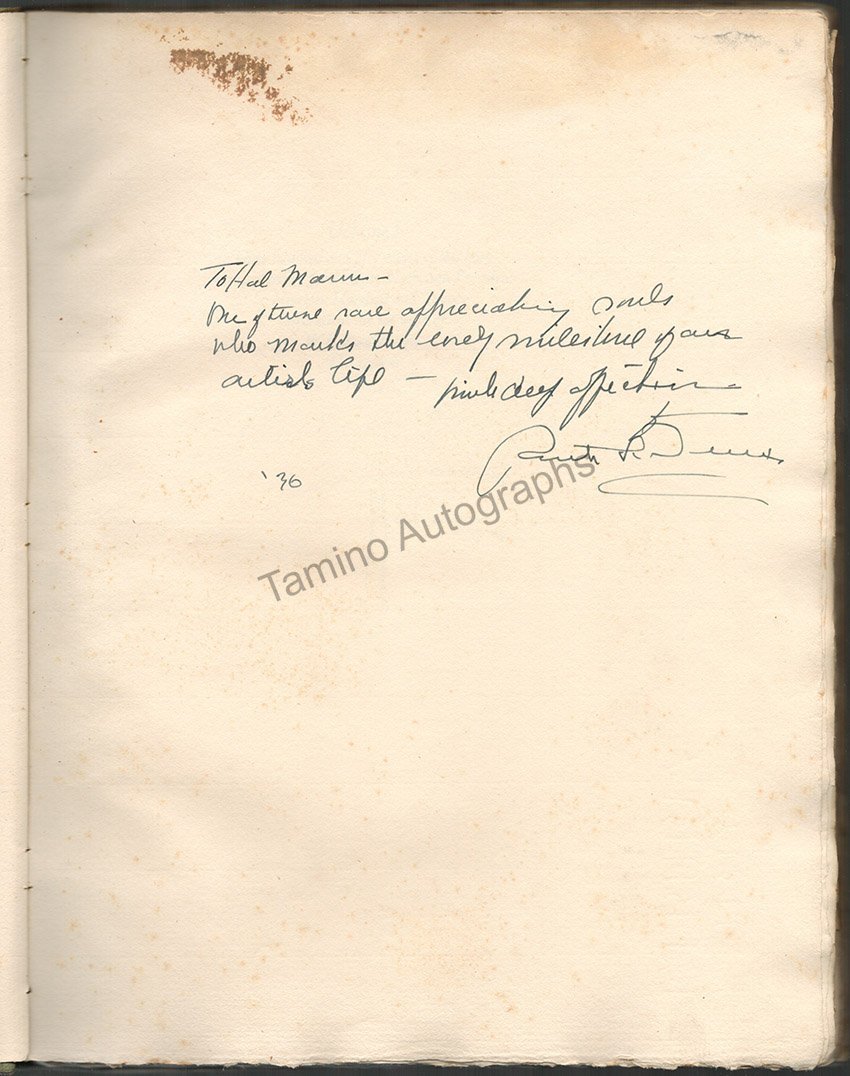 To Hal
One of those rare appreciating souls
who marks the milestone of an
artists life — with deep affection
Ruth St. Denis
'36
Tamino Autographs